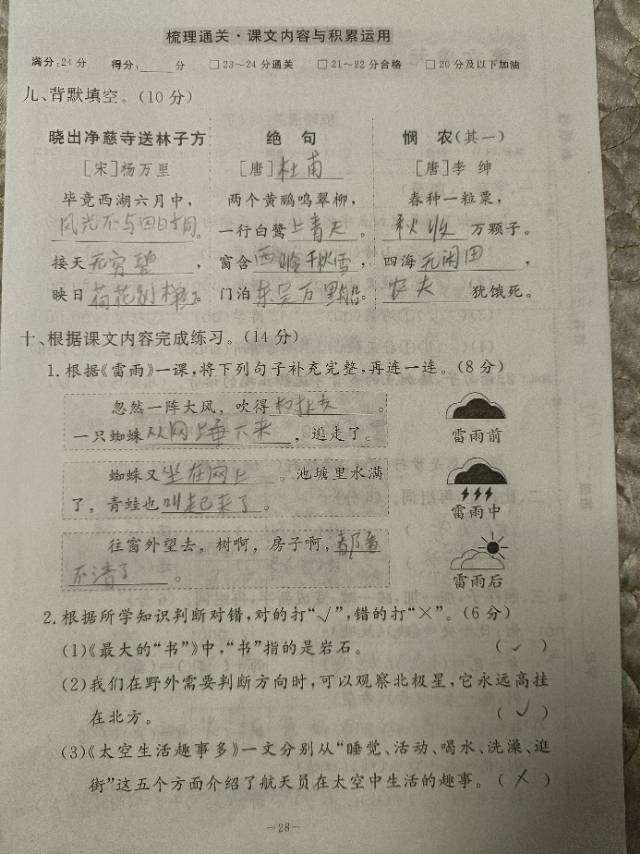 梳理通关·课文内容与积累运用
满分:24分 得分:____分 □23~24分通关 □21~22分合格 □20分及以下加油
九、背默填空。(10分)
晓出净慈寺送林子方 绝 句 悯 农(其一)
[宋]杨万里 [唐]杜甫 [唐]李 绅
毕竟西湖六月中, 两个黄鹂鸣翠柳, 春种一粒粟,
风光不与四时同。 一行白鹭上青天。 秋收万颗子。
接天无穷碧, 窗含西岭千秋雪, 四海无闲田,
映日荷花别样。 门泊东吴万里船。 农夫犹饿死。
十、根据课文内容完成练习。(14分)
1.根据《雷雨》一课,将下列句子补充完整,再连一连。(8分)
忽然一阵大风,吹得。
一只蜘蛛从网上垂下来,逃走了。
雷雨前
蜘蛛又坐在网上。池塘里水满
了,青蛙也叫起来了。
雷雨中
往窗外望去,树啊,房子啊,都看
不清了。
雷雨后
2.根据所学知识判断对错,对的打“√”,错的打“×”。(6分)
(1)《最大的“书”》中,“书”指的是岩石。 (√)
(2)我们在野外需要判断方向时,可以观察北极星,它永远高挂
在北方。 (√)
(3)《太空生活趣事多》一文分别从“睡觉、活动、喝水、洗澡、逛
街”这五个方面介绍了航天员在太空中生活的趣事。(×)
—28—